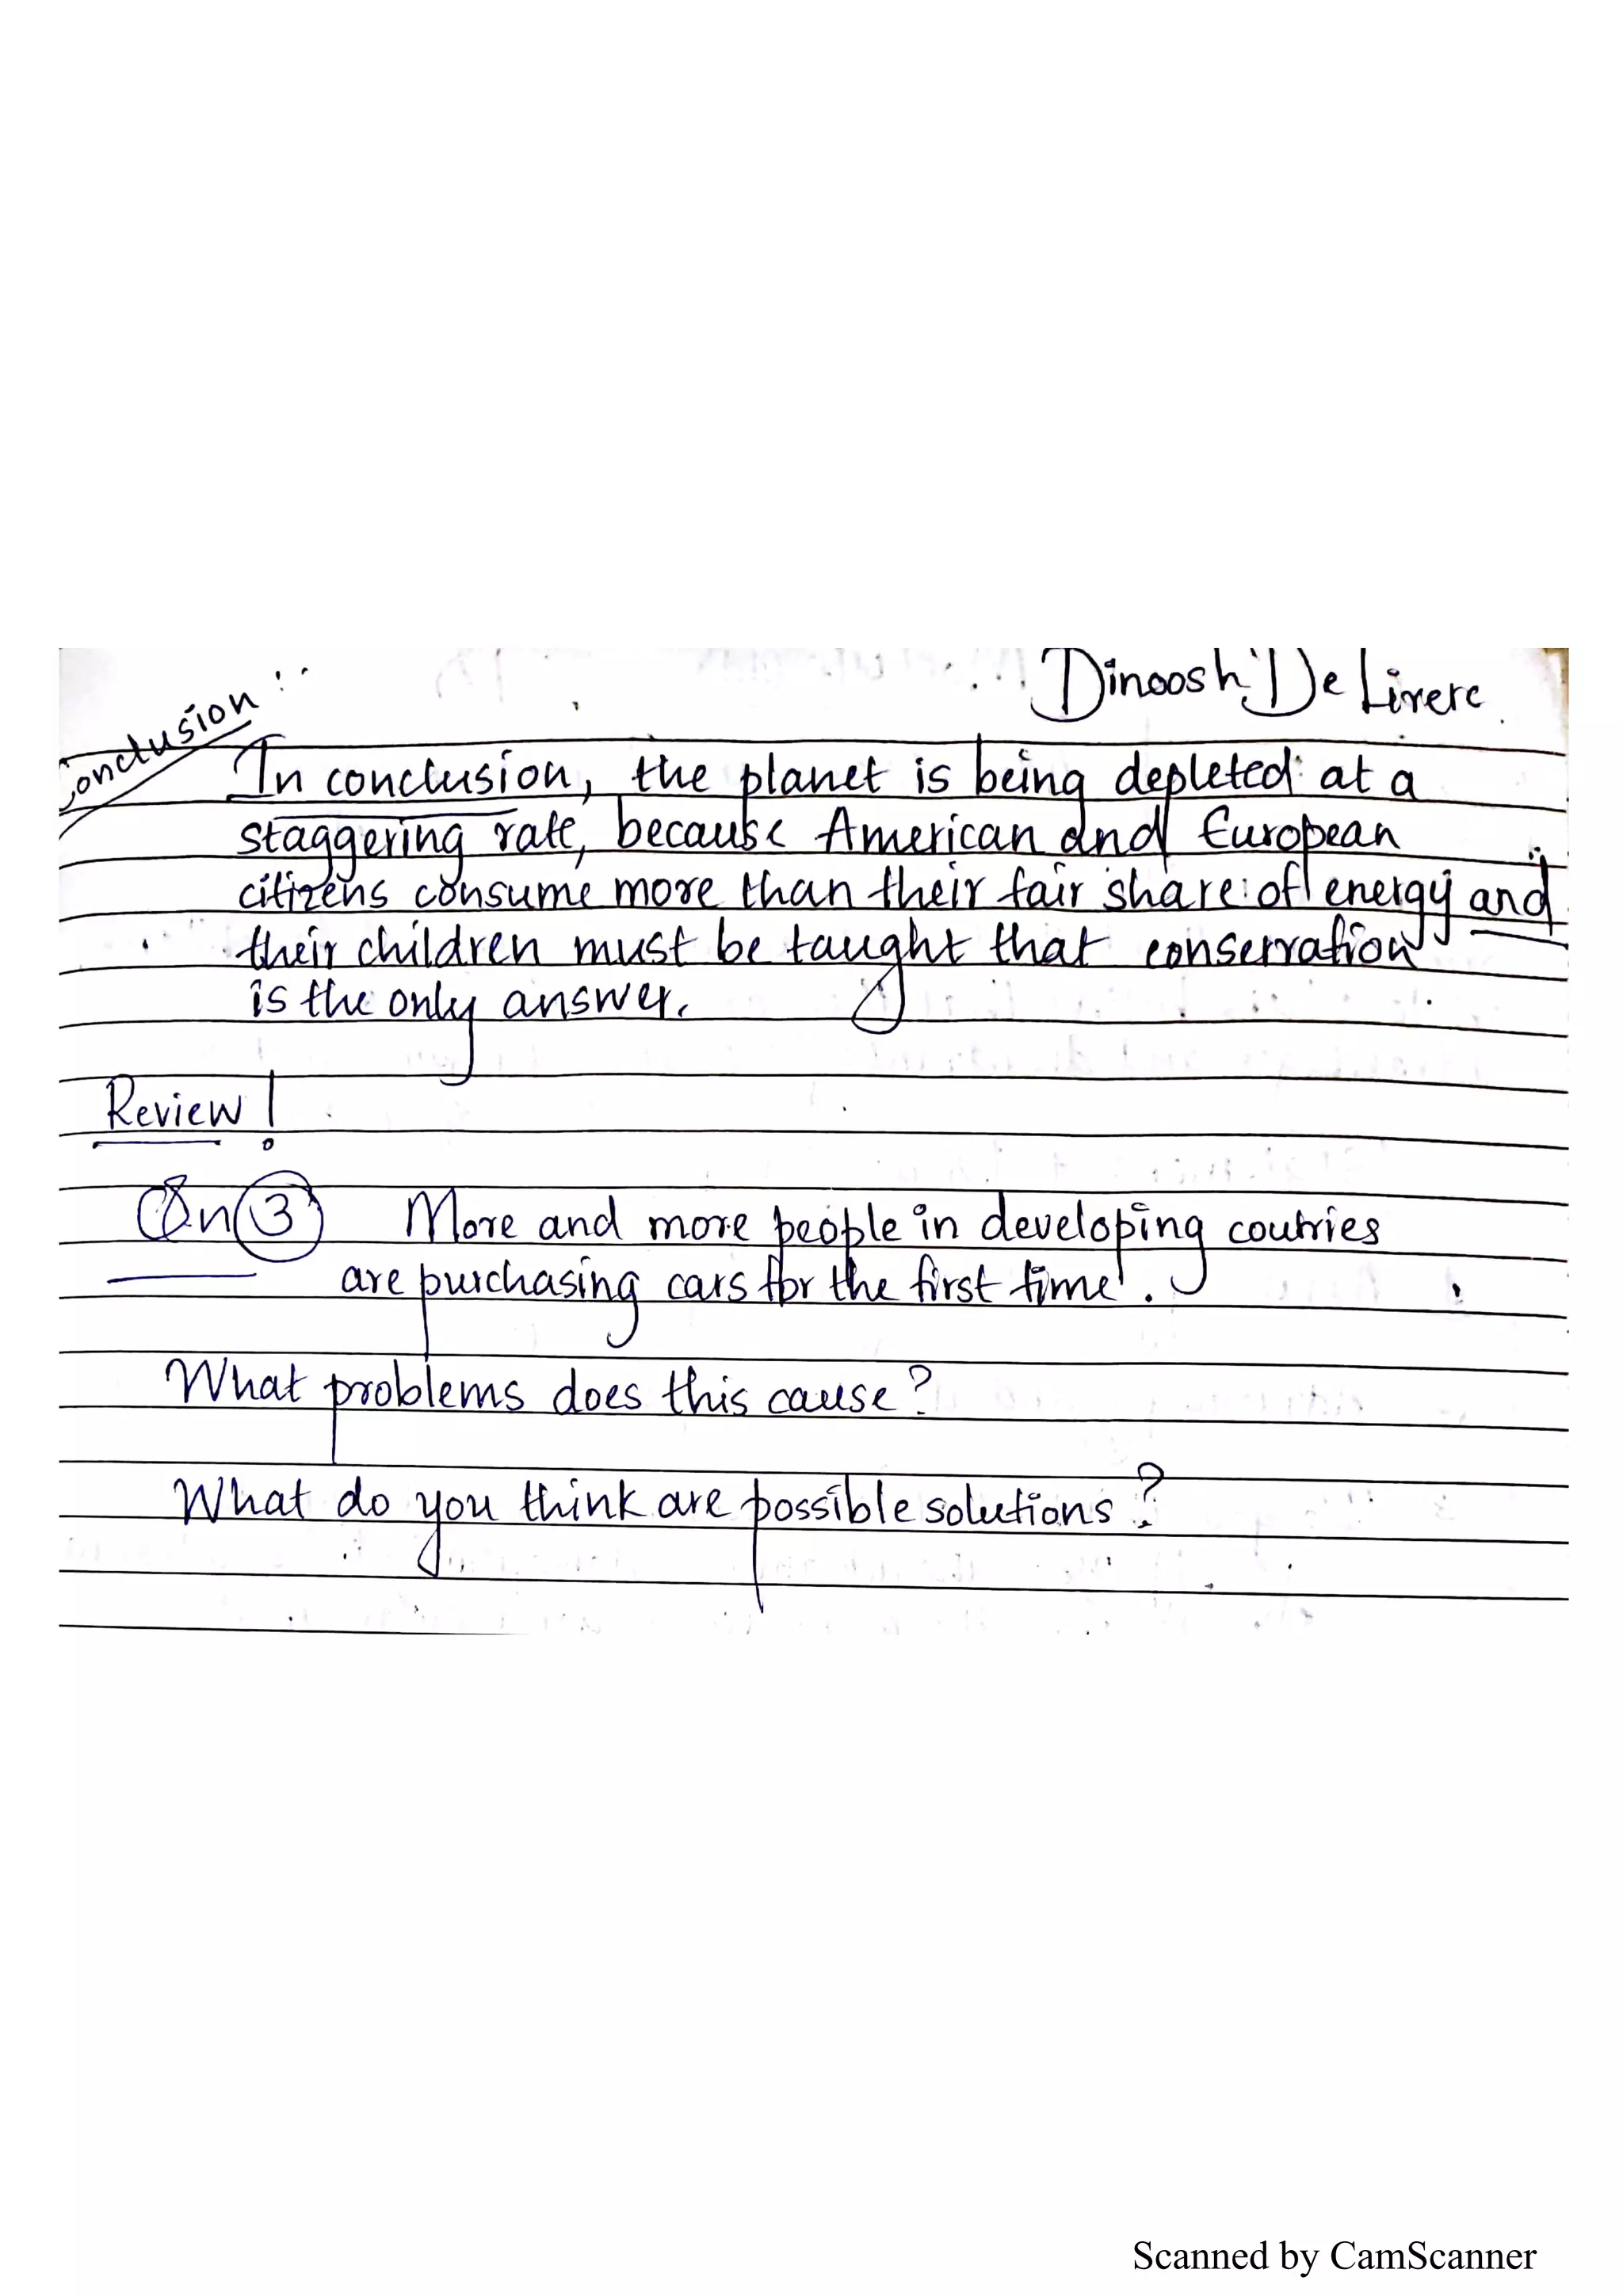 Dinoosh De Livere
Conclusion
In conclusion, the planet is being depleted at a
staggering rate, because American and European
citizens consume more than their fair share of energy and
their children must be taught that conservation
is the only answer.
Review!
Qn 3 More and more people in developing coutries
are purchasing cars for the first time.
What problems does this cause?
What do you think are possible solutions?
Scanned by CamScanner